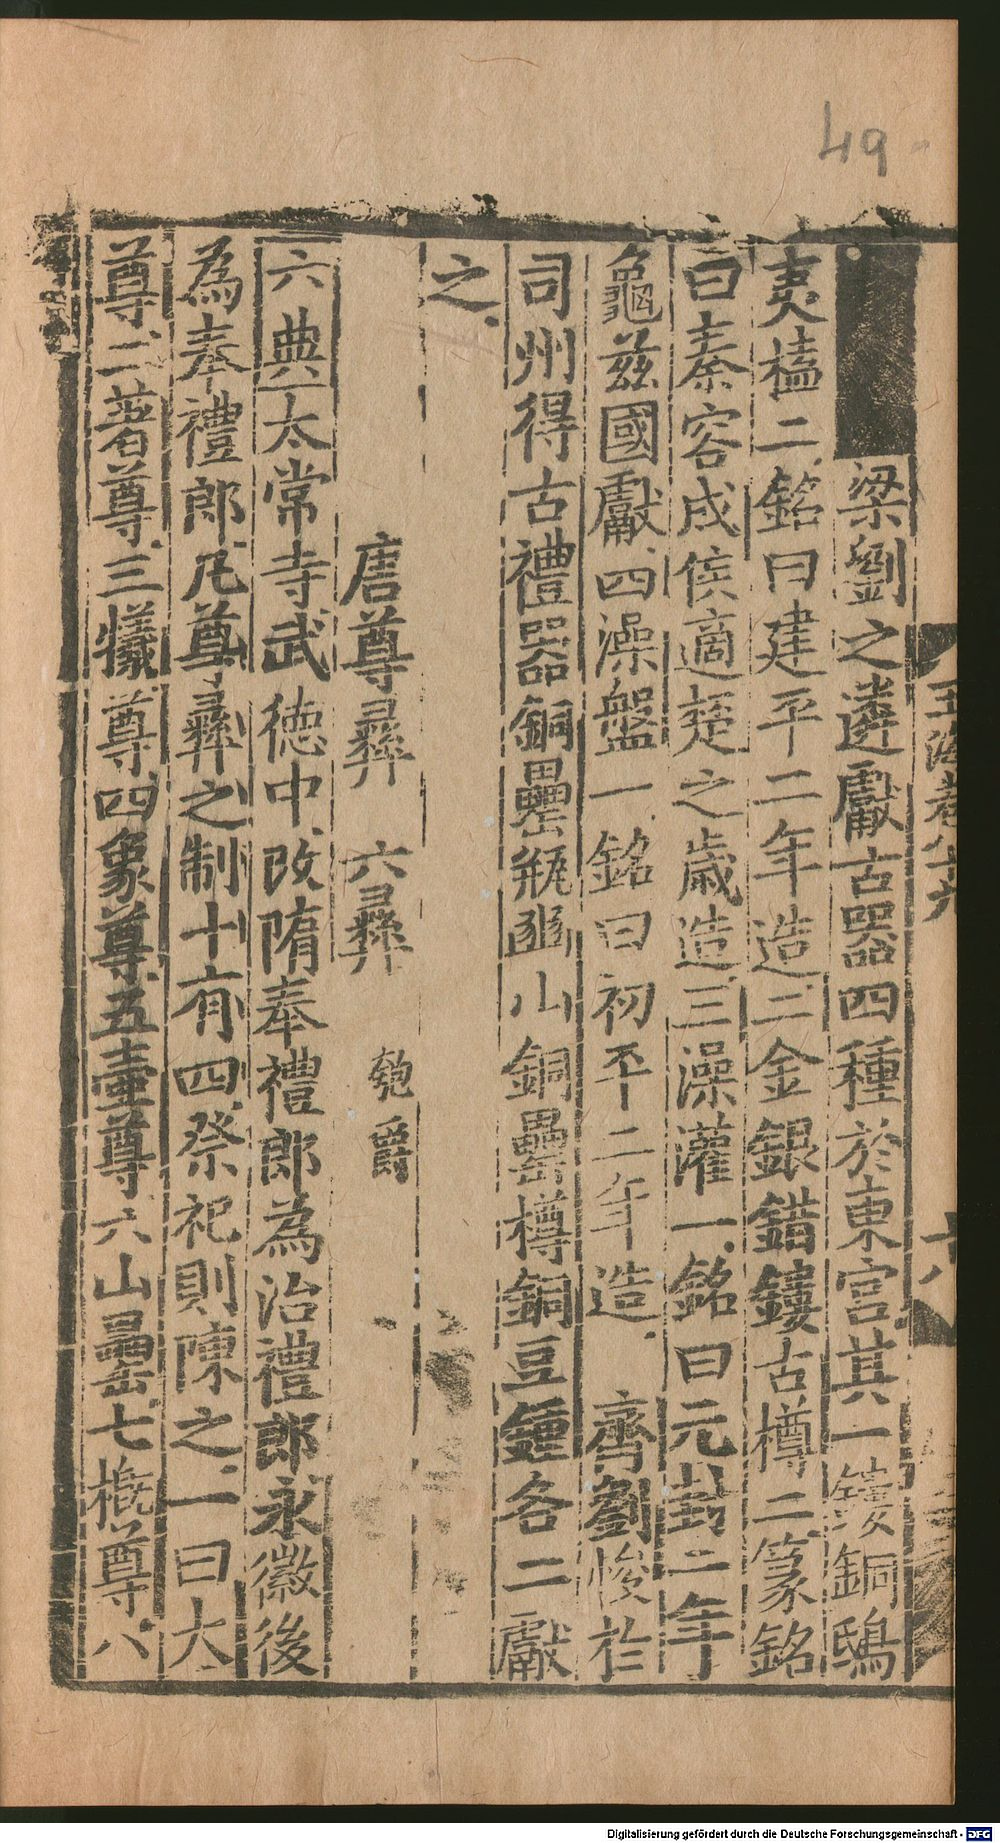 49
玉海卷八十九
十八
梁劉之遴獻古器四種於東宮其一鏤銅鴟
夷榼二銘曰建平二年造二金銀錯鏤古樽二篆銘
曰秦容成侯適楚之歲造三澡灌一銘曰元封二年
龜茲國獻四澡盤一銘曰初平二年造 齊劉悛於
司州得古禮器銅罍甀豳山銅罍樽銅豆鍾各二獻
之
唐尊彝 六彝 匏爵
六典太常寺武德中改隋奉禮郎為治禮郎永徽後
為奉禮郎凡尊彝之制十有四祭祀則陳之一曰大
尊二著尊三犧尊四象尊五壷尊六山罍七概尊八
Digitalisierung gefördert durch die Deutsche Forschungsgemeinschaft - DFG